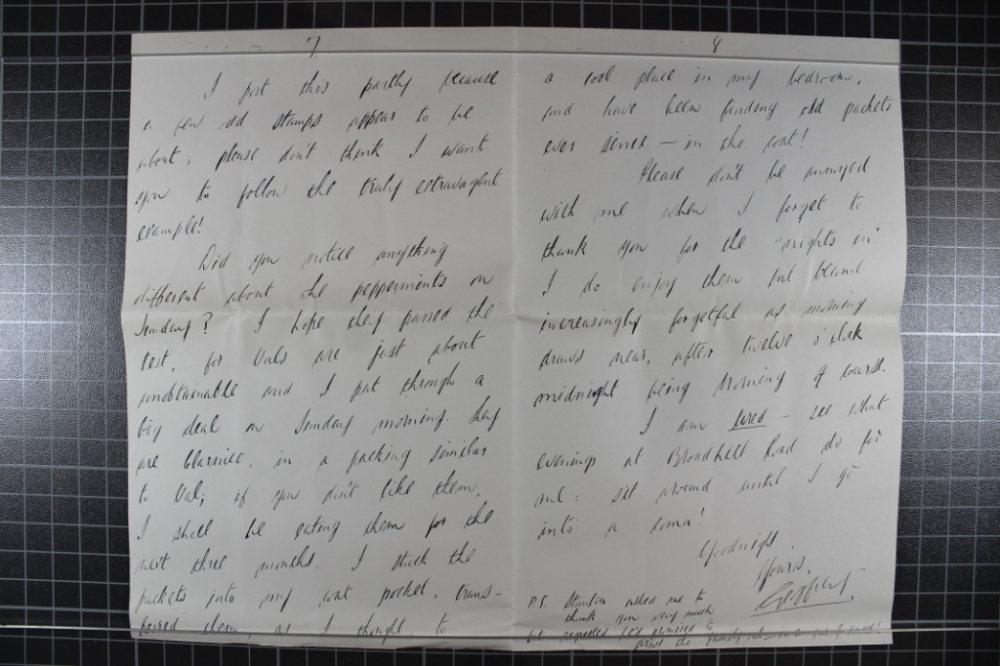 7.
I post this partly because
a few odd stamps appear to be
about; please don't think I want
you to follow the truly extravagent
example!
Did you notice anything
different about the pepperments on
Sunday? I hope they passed the
test, for Uals are just about
unobtainable and I put through a
big deal on Sunday morning. They
are Clarnico, in a packing similar
to Ual; if you don't like them,
I shall be eating them for the
next three months. I stuck the
packets into my coat pocket, trans-
ferred them, as I thought, to
8
a cool place in my bedroom,
and have been finding odd packets
ever since – in the coat!
Please don't be annoyed
with me when I forget to
thank you for the "nights in"
I do enjoy them but become
increasingly forgetful as morning
draws near, after twelve o'clock
midnight being morning of course.
I am tired – see what
evenings at Broadhill Road do for
me: sit around until I go
into a coma!
Goodnight.
Yours,
Geoffrey.
P.S. asked me to
thank you very much
but regretted he'd promised to
the family